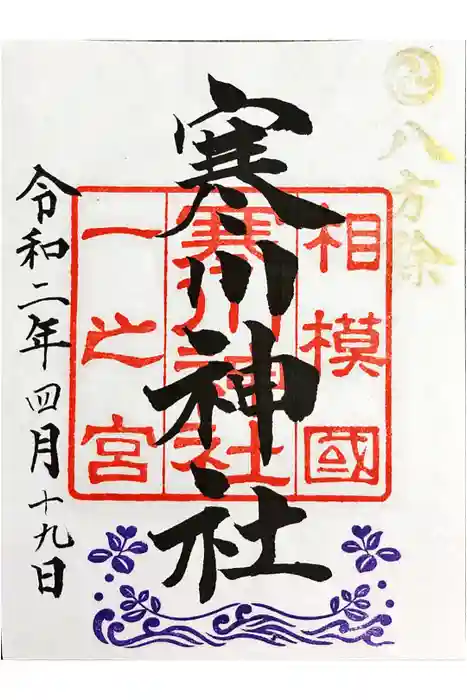 八方除
相模國
寒川神社
一之宮
寒川神社
令和二年四月十九日